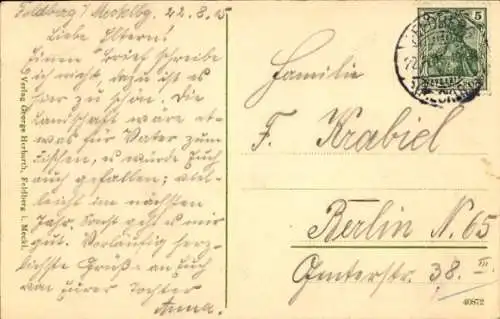 Feldberg i/ Mecklbg. 22.8.15
Liebe Eltern!
Einen Brief schreibe
ich nicht, dazu ist es
hier zu schön. Die
Landschaft wäre et-
was für Vater zum
, u würde Euch
auch gefallen; viel-
leicht im nächsten
Jahr. Sonst geht es mir
gut. Vorläufig herz-
lichste Grüße an Euch
von Eurer Tochter
Anna.
Verlag George Herburth, Feldberg i. Meckl.
5
Familie
F. Krabiel
Berlin N. 65
Genterstr. 38. III
40872